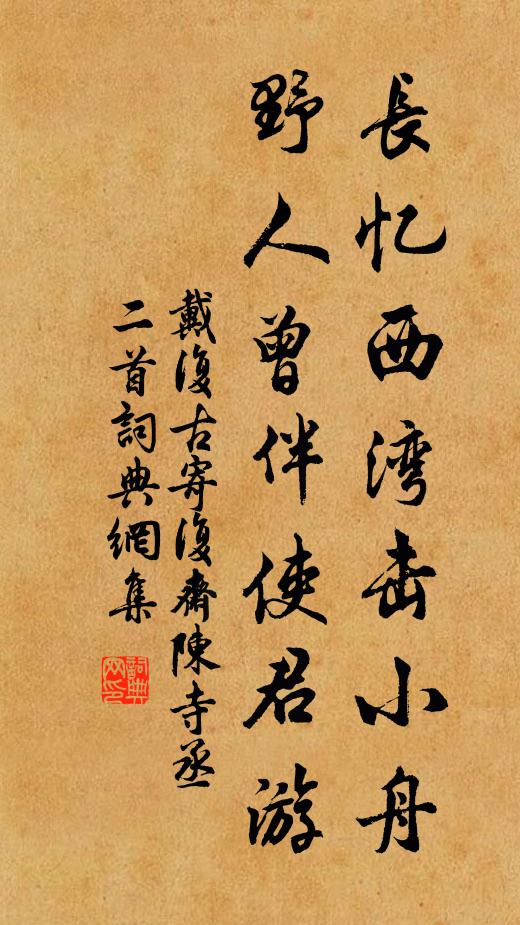 長忆西湾击小舟
野人曾伴使君游
戴復古寄復齋陳寺丞
二首詞典網集
詞典网印